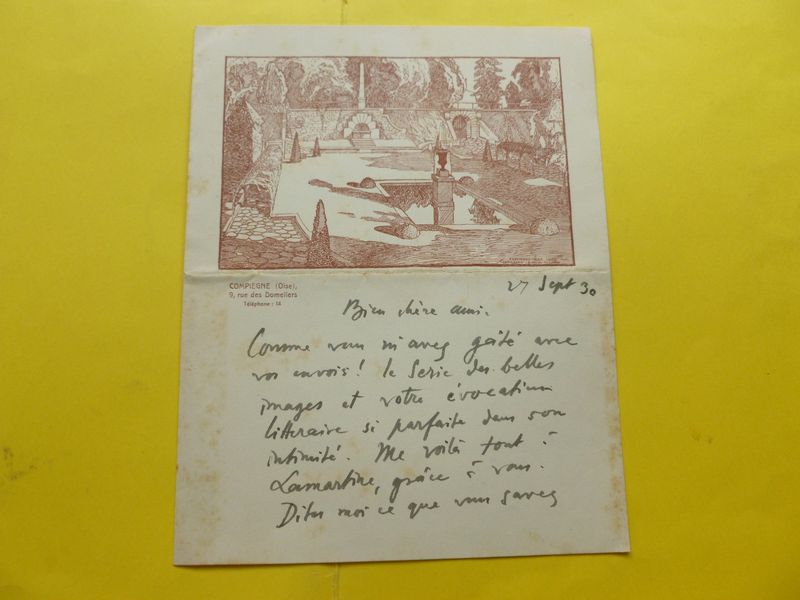 COMPIEGNE (Oise),
9, rue des Domeliers
Téléphone : 14
27 Sept 30
Bien chère amie.
Comme vous m'avez gâté avec
vos envois! la Serie des belles
images et votre évocation
litteraire si parfaite dans son
intimité. Me voilà tout à
Lamartine, grâce à vous.
Dites moi ce que vous savez